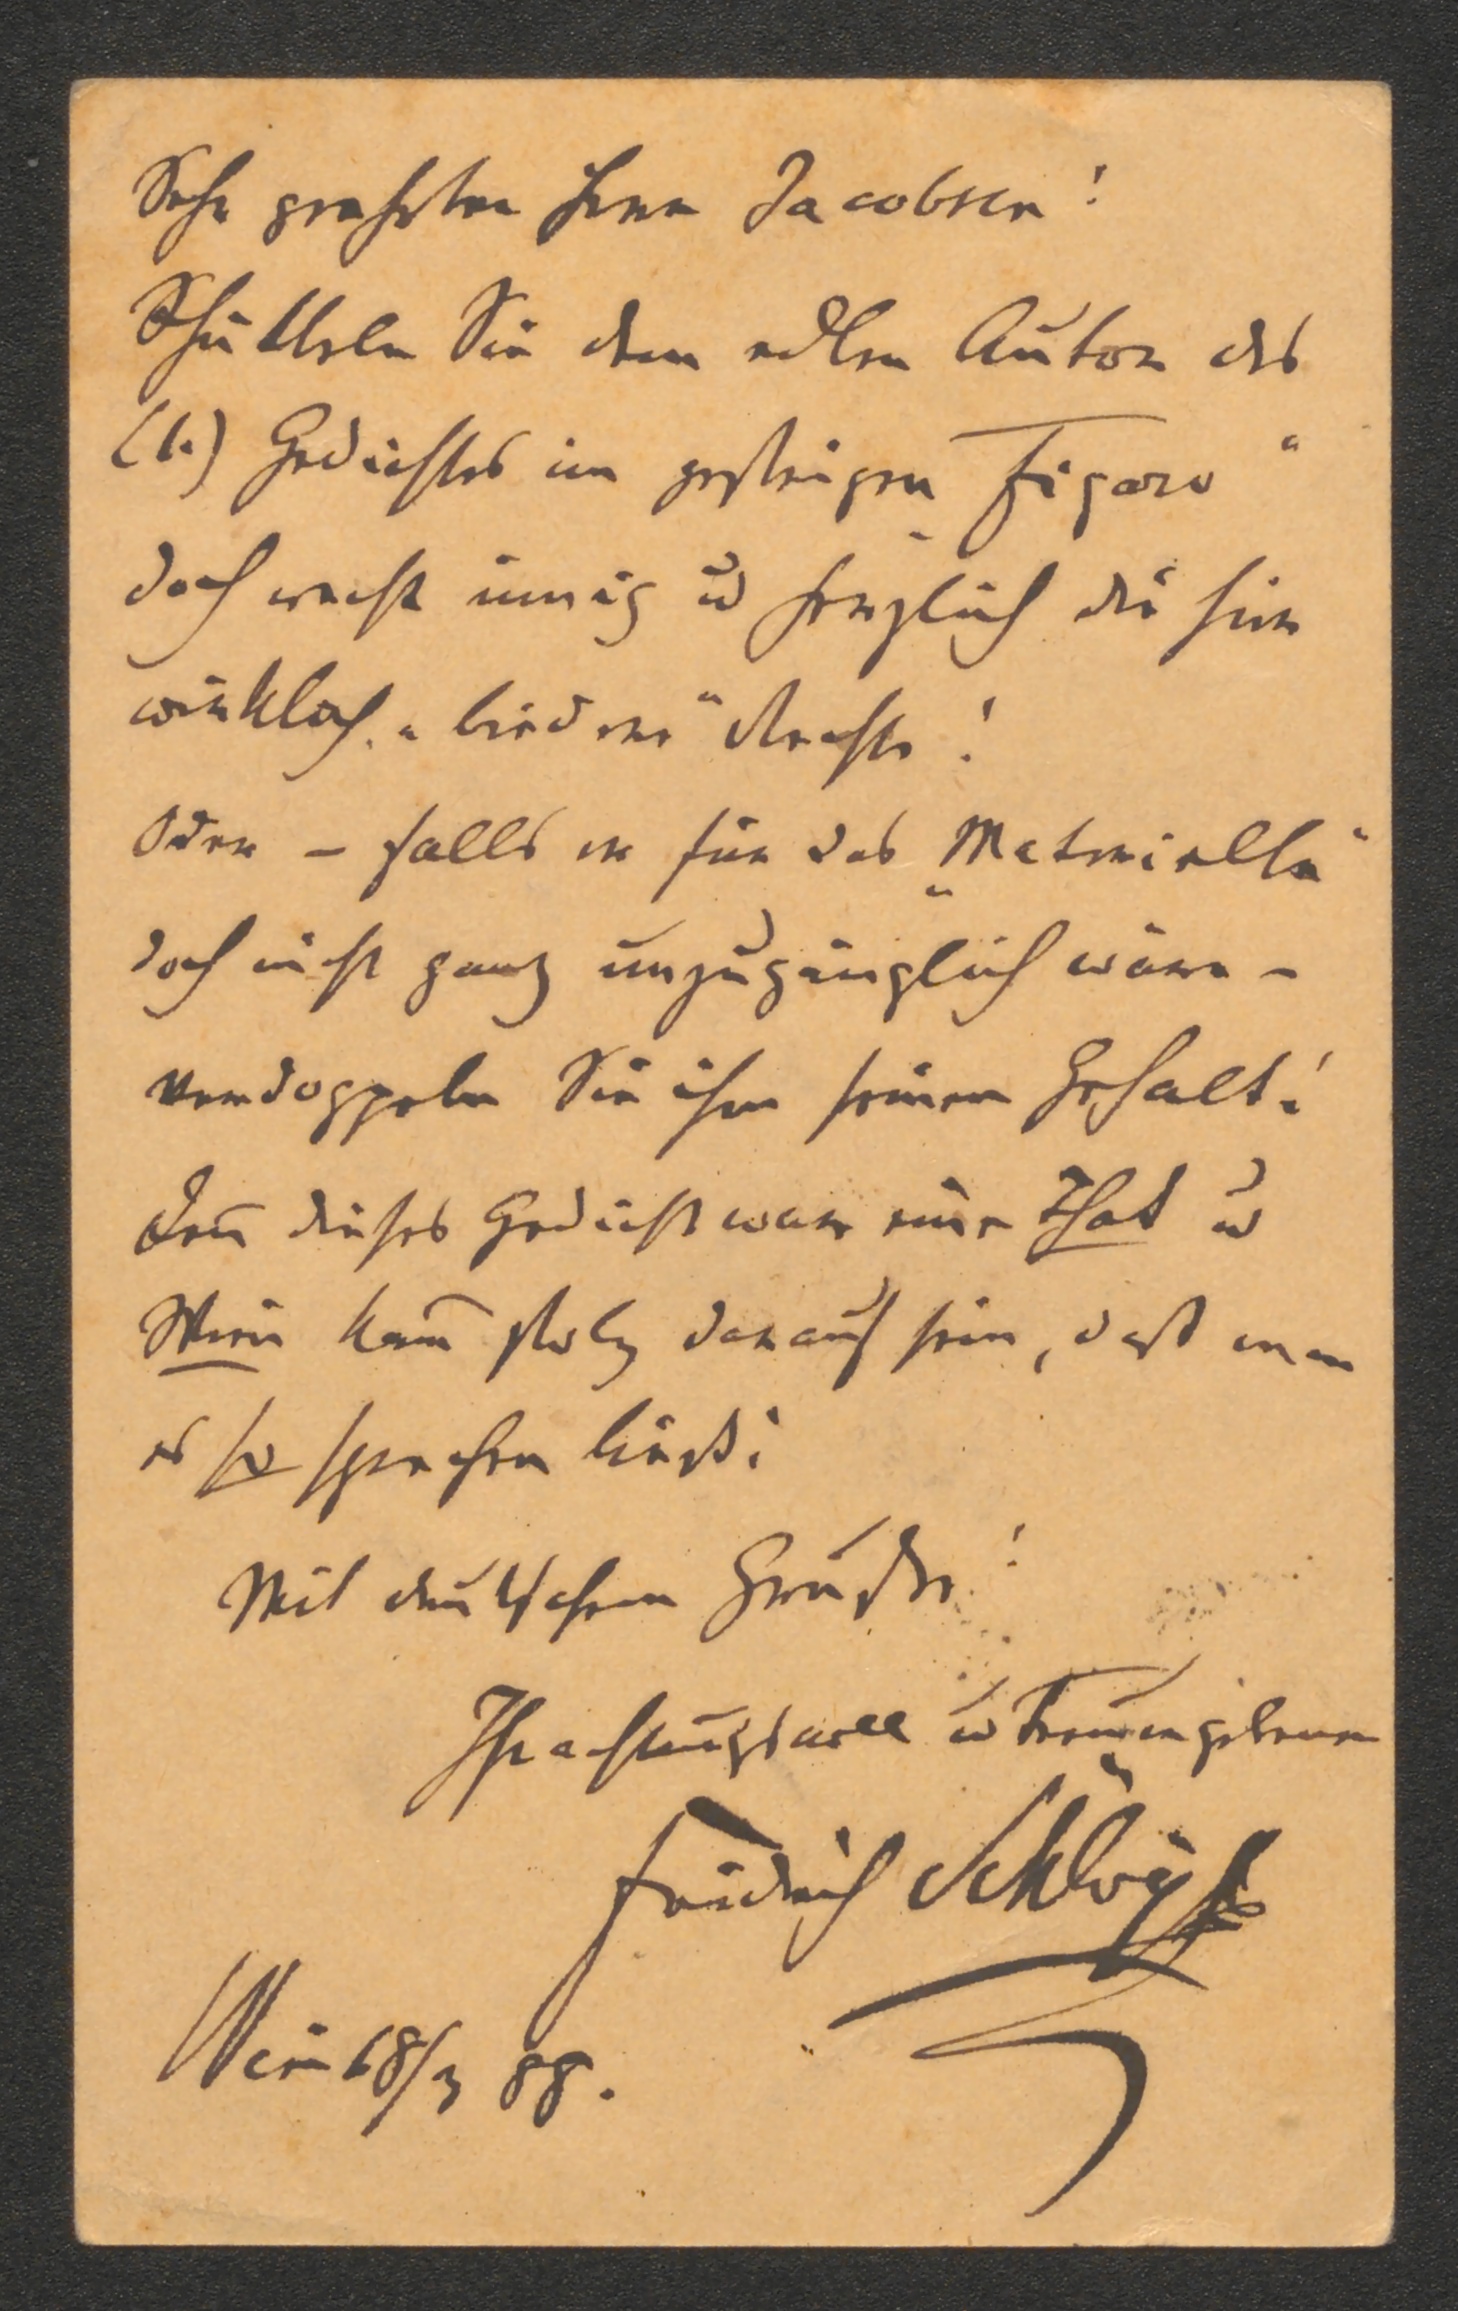 Sehr geehrter Herr Jacobsen!
Schütteln Sie dem edlen Autor des
(1.) Gedichtes im gestrigen „Figaro“
doch recht innig u herzlich die hier
wirklich „biedere“ Rechte!
Oder – falls er für das „Materielle“
doch nicht ganz unzugänglich wäre –
verdoppeln Sie ihm seinen Gehalt!
Den̄ dieses Gedicht war eine That u
Wien kan̄ stolz darauf sein, daß man
es so sprechen ließ!
Mit deutschem Gruße!
Ihr achtungsvoll u treu ergebener
Friedrich Schlögl
Wien 18/3 88.